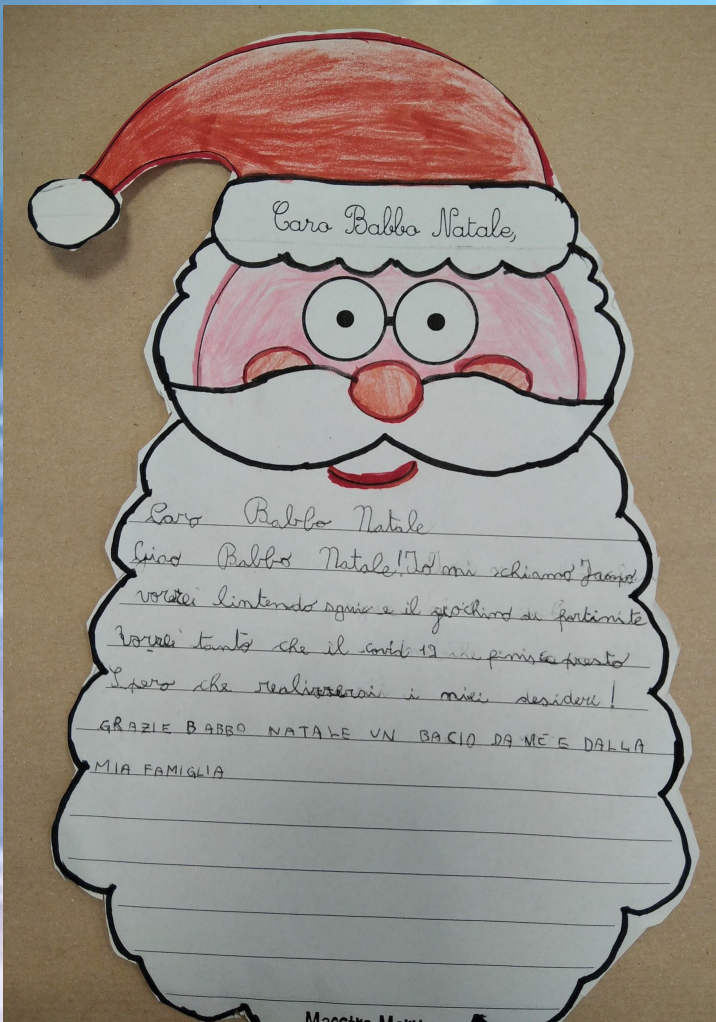 Caro Babbo Natale,
Caro Babbo Natale
Ciao Babbo Natale! Io mi chiamo
vorrei lintendo sguix e il giochino di fortinite
Vorrei tanto che il covid 19 che finisce presto
Spero che realizzerai i miei desideri!
GRAZIE BABBO NATALE UN BACIO DA ME E DALLA
MIA FAMIGLIA
Maestra